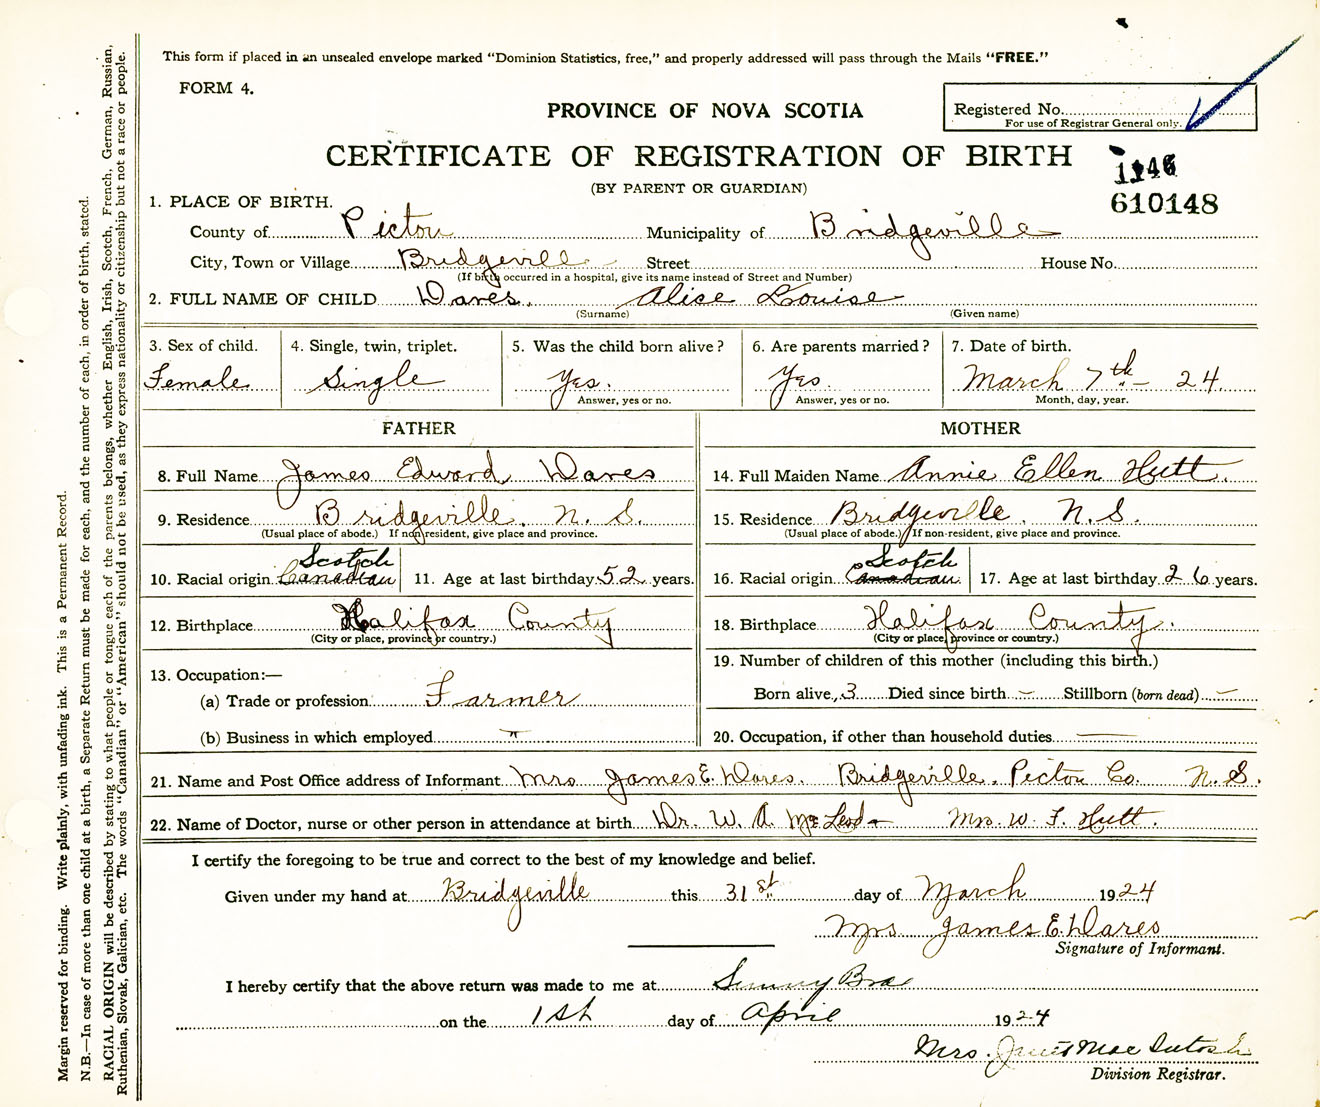 This form if placed in an unsealed envelope marked "Dominion Statistics, free," and properly addressed will pass through the Mails "FREE."
FORM 4.
PROVINCE OF NOVA SCOTIA
Registered No.
For use of Registrar General only.
CERTIFICATE OF REGISTRATION OF BIRTH
(BY PARENT OR GUARDIAN)
610148
1. PLACE OF BIRTH.
County of Pictou Municipality of Bridgeville
City, Town or Village Bridgeville Street House No.
(If birth occurred in a hospital, give its name instead of Street and Number)
2. FULL NAME OF CHILD Dares. Alice Louise
(Surname) (Given name)
3. Sex of child. 4. Single, twin, triplet. 5. Was the child born alive? 6. Are parents married? 7. Date of birth.
Female Single Yes. Yes. March 7th 24.
Answer, yes or no. Answer, yes or no. Month, day, year.
FATHER MOTHER
8. Full Name James Edward Dares 14. Full Maiden Name Annie Ellen Hutt.
9. Residence Bridgeville, N. S. 15. Residence Bridgeville, N. S.
(Usual place of abode.) If non resident, give place and province. (Usual place of abode.) If non-resident, give place and province.
Scotch Scotch
10. Racial origin Canadian 11. Age at last birthday 52 years. 16. Racial origin Canadian 17. Age at last birthday 26 years.
12. Birthplace Halifax County 18. Birthplace Halifax County.
(City or place, province or country.) (City or place, province or country.)
13. Occupation:— 19. Number of children of this mother (including this birth.)
(a) Trade or profession Farmer Born alive, 3 Died since birth – Stillborn (born dead) –
(b) Business in which employed 20. Occupation, if other than household duties
21. Name and Post Office address of Informant Mrs James E. Dares. Bridgeville. Pictou Co. N. S.
22. Name of Doctor, nurse or other person in attendance at birth Dr. W. A. McLeod Mrs. W. F. Hutt.
I certify the foregoing to be true and correct to the best of my knowledge and belief.
Given under my hand at Bridgeville this 31st day of March 1924
Mrs James E. Dares
Signature of Informant.
I hereby certify that the above return was made to me at Sunny Brae
on the 1st day of April 1924
Mrs. MacIntosh
Division Registrar.
Margin reserved for binding. Write plainly, with unfading ink. This is a Permanent Record.
N.B.—In case of more than one child at a birth, a Separate Return must be made for each, and the number of each, in order of birth, stated.
RACIAL ORIGIN will be described by stating to what people or tongue each of the parents belongs, whether English, Irish, Scotch, French, German, Russian,
Ruthenian, Slovak, Galician, etc. The words "Canadian" or "American" should not be used, as they express nationality or citizenship but not a race or people.